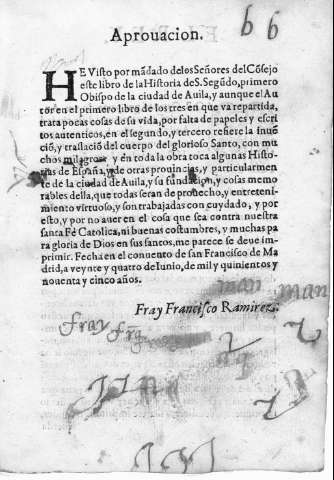 b 6
Aprouacion.
HE Visto por mãdado delos Señores del Cõsejo
este libro de la Historia de S. Segũdo, primero
Obispo de la ciudad de Auila, y aunque el Au
tor en el primero libro de los tres en que va repartida,
trata pocas cosas de su vida, por falta de papeles y escri
tos autenticos, en el segundo, y tercero refiere la inuẽ
ciõ, y traslaciõ del cuerpo del glorioso Santo, con mu
chos milagros, y en toda la obra toca algunas Histo
rias de España, y de otras prouincias, y particularmen
te de la ciudad de Auila, y su fundacion, y cosas memo
rables della, que todas seran de prouecho, y entreteni
miento virtuoso, y son trabajadas con cuydado, y por
esto, y por no auer en el cosa que sea contra nuestra
santa Fè Catolica, ni buenas costumbres, y muchas pa
ra gloria de Dios en sus santos, me parece se deue im-
primir. Fecha en el conuento de san Francisco de Ma
drid, a veynte y quatro de Iunio, de mil y quinientos y
nouenta y cinco años.
Fray Francisco Ramirez.
man man
fray frã